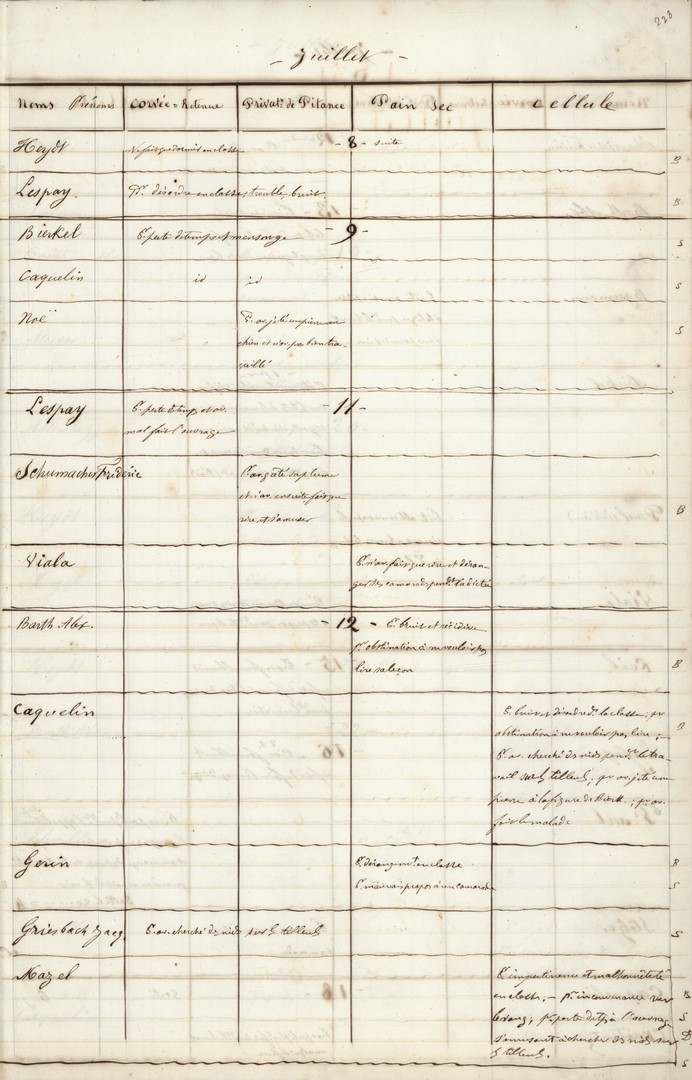 228
- Juillet -
Noms Prénoms Corvée = Retenue Privatn. de Pitance Pain Sec Cellule
- 8 - suite
Heydt Ne fait que dormir en classe
B
Lespay. Pr. désordre en classe, trouble, bruit.
B
- 9 -
Bierkel P. perte de temps et mensonge
S
Caquelin id id
S
Noë P. av. jeté une pierre au
chien et n'av. pas bien tra-
vaillé
S
- 11 -
Lespay P. perte de temps et av.
mal fait l'ouvrage
Schumacher Frédéric P. av. gâté sa plume
et n'av. ensuite fait que
rire et s'amuser
B
Viala P. n'av. fait que rire et déran-
ger ses camarades pendt. la dictée
- 12 -
Barth Alex. P. bruit et récidive
pr. obstination à ne vouloir pas
lire sa leçon
B
Caquelin P. bruit et désordre ds. la classe; pr
obstination à ne vouloir pas lire; -
P. av. cherché des nids pendt. le tra-
vail sur les tilleuls; pr av. jeté une
pierre à la figure de Bierk.; pr. av.
fait le malade
B
Gerin P. dérangemt. en classe
P. mauvais propos à un camarade
B
S
Griesbach Jacq. P. av. cherché des nids sur les tilleuls
S
Mazel P. impertinence et malhonnêteté
en classe. - pr. inconvenance sur
le rang; pr. perte de tps à l'ouvrage
s'amusant à chercher des nids sur
les tilleuls.
B
S
D.
S